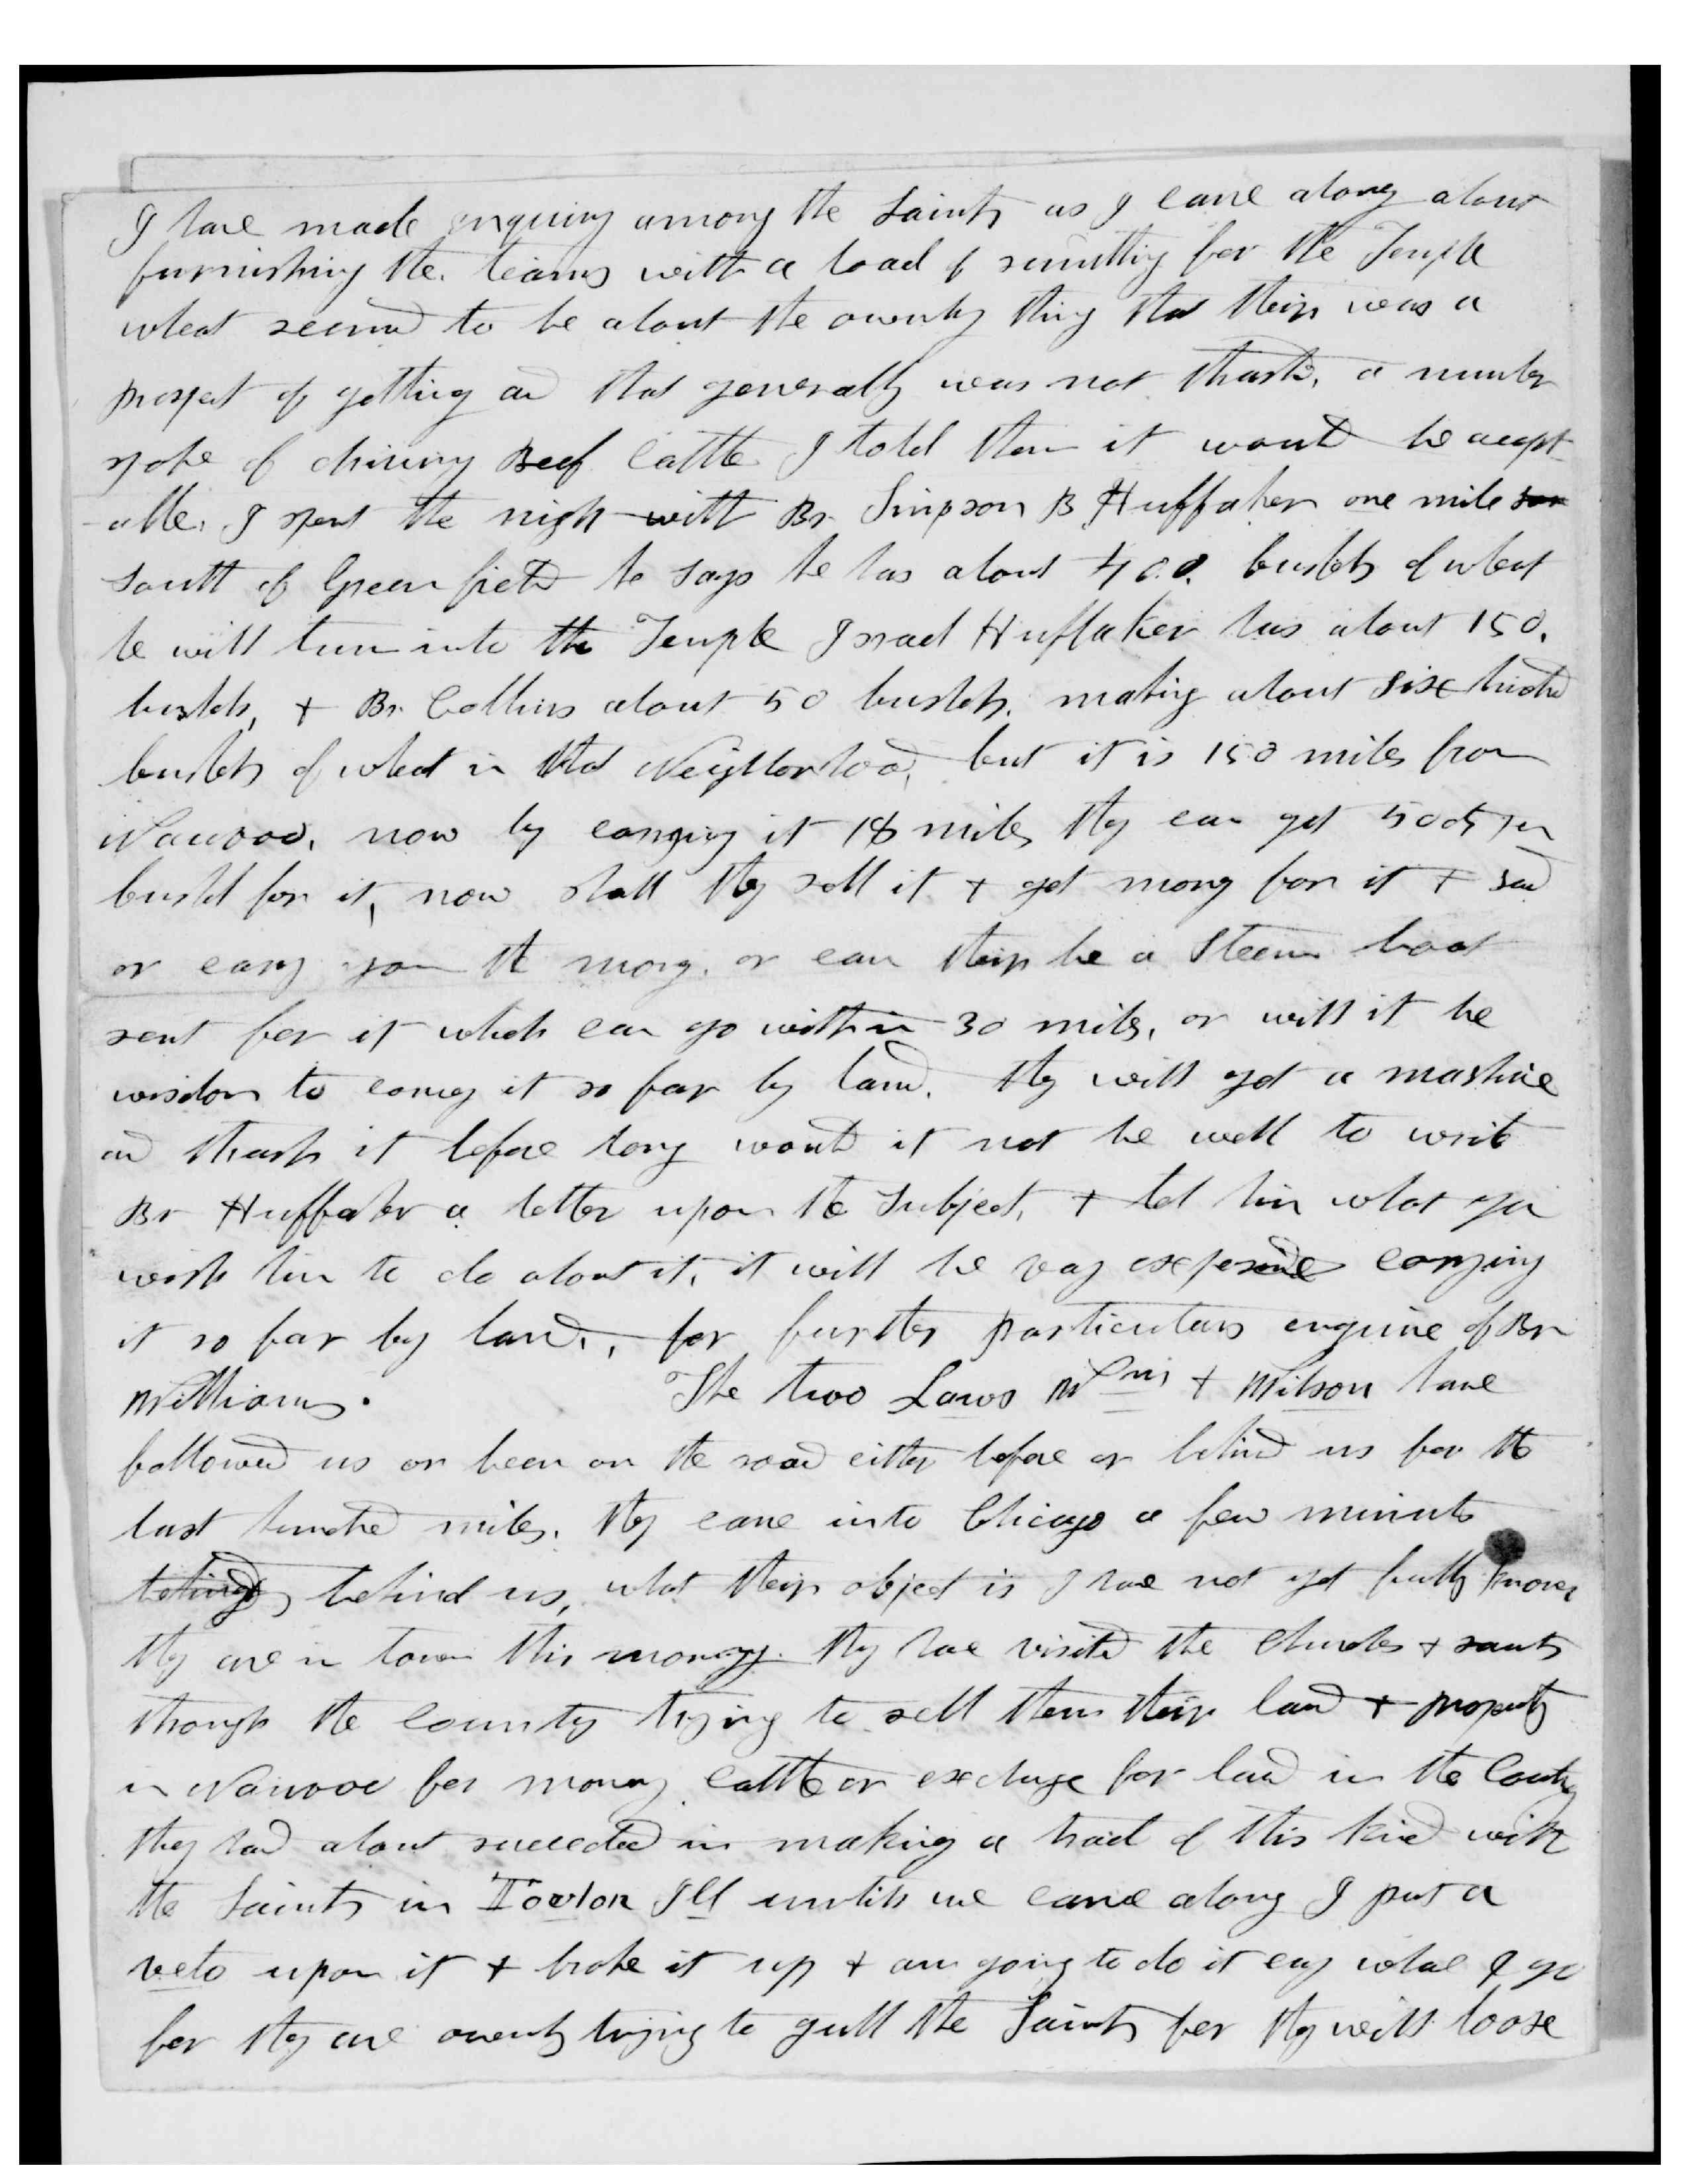 I have made enquiry among the Saints as I came along about
furnishing the teams with a load of sumthing for the Temple
wheat seemd to be about the ownly thing that their was a
prospect of getting and that generally was not thrashd, a number
spoke of driving Beef Cattle I told them it would be accept
-able, I spent the night with Br Simpson B Huffaker one mile
South of Greenfield he says he has about 400. bushels of wheat
he will turn into the Temple Israel Huffaker has about 150.
bushels, + Br Collins about 50 bushels. making about Six hundred
bushels of wheat in that Neighborhood, but it is 150 miles from
Nauvoo. now by carrying it 18 miles they can get 50 cts per
bushel for it, now shall they sell it + get money for it + send
or carry you the money. or can their be a Steem boat
sent for it which can go within 30 miles, or will it be
wisdom to convey it so far by land. they will get a mashine
and thrash it before long would it not be well to write
Br Huffaker a letter upon the Subject, + tel him what you
wish him to do about it, it will be vary expensive carrying
it so far by land., for further particulars enquire of Br
Williams. The two Laws Wm + Wilson have
followed us or been on the road either before or behind us for the
last hundred miles. they came into Chicago a few minuts
behind behind us, what their object is I have not yet fully known
they are in town this morning. they have visited the churches + saints
through the country trying to sell them their land + property
in Nauvoo for money, cattle or exchange for land in the Country
they had about succeeded in making a traid of this kind with
the Saints in Ill untill we came along I put a
veto upon it + broke it up + am going to do it evry whare I go
for they are ownly trying to gull the Saints for they will loose